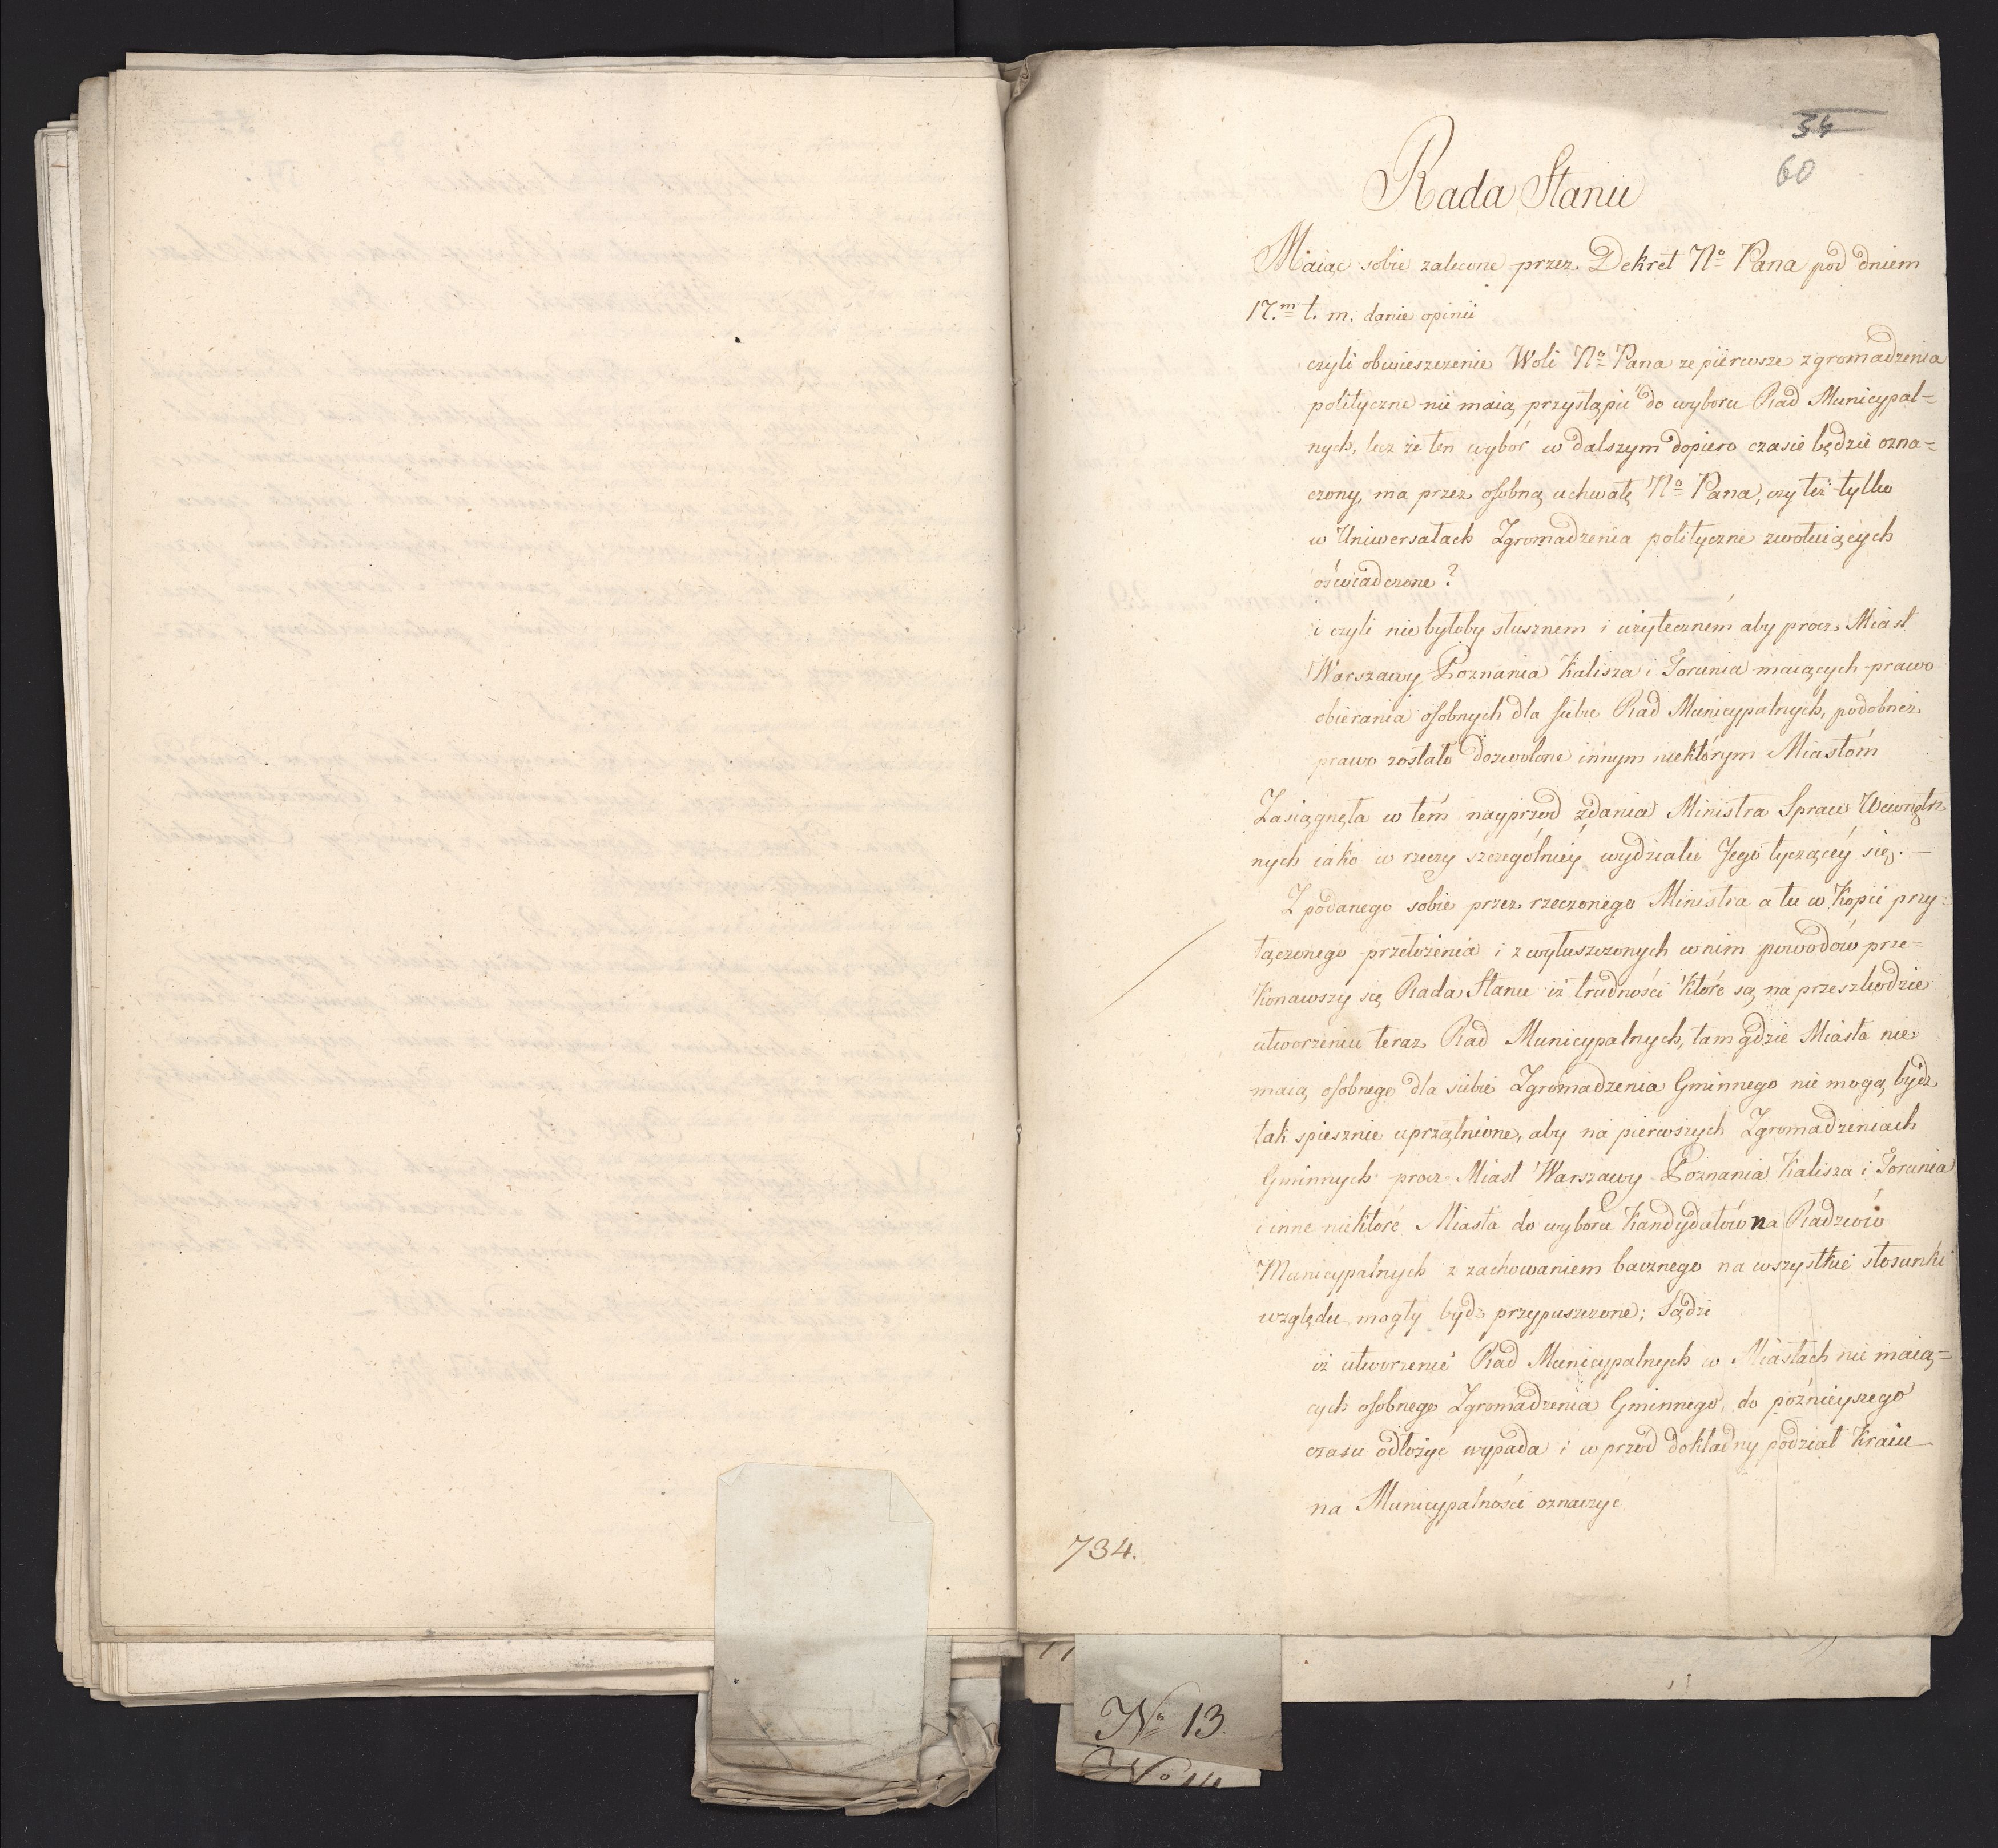 34
60
Rada Stanu
Maiąc sobie zalecone przez Dekret No Pana pod dniem
17.m t. m. danie opinii
czyli obwieszczenie Woli No Pana ze piérwsze zgromadzenia
polityczne nie maią przystąpić do wyboru Rad Municypal=
nych, lecz że ten wybór w dalszym dopiero czasie będzie ozna=
czony, ma przez osobną uchwałę No Pana, czy też tylko
w Uniwersałach Zgromadzenia polityczne zwołuiących
oświadczone?
i czyli nie byłoby słusznem i użyteczném aby procz Miast
Warszawy Poznania Kalisza i Torunia maiących prawo
obierania osobnych dla siebie Rad Municypalnych, podobneż
prawo zostało dozwolone innym niektórym Miastóm
Zasiągnęła w tém nayprzod zdania Ministra Spraw Wewnętrz
nych iako w rzeczy szczególniéy wydziału Jego tyczącéy się. —
Z podanego sobie przez rzeczonego Ministra a tu w Kopii przy=
łączonego przełożenia i z wyłuszczonych w nim powodów prze=
konawszy się Rada Stanu iż trudności które są na przeszkodzie
utworzeniu teraz Rad Municypalnych, tam gdzie Miasta nie
maią osobnego dla siebie Zgromadzenia Gminnego nie mogą bydz
tak spiesznie uprzątnione, aby na pierwszych Zgromadzeniach
Gminnych procz Miast Warszawy Poznania Kalisza i Torunia
i inne niektoré Miasta do wyboru Kandydatów na Radzców
Municypalnych z zachowaniem bacznego na wszystkie stosunki
względu mogły bydz przypuszczone; Sądzi
iż utworzenie Rad Municypalnych w Miastach nie maią=
cych osobnego Zgromadzenia Gminnego, do poźnieyszego
czasu odłożyć wypada i w przód dokładny podział Kraiu
na Municypalności oznaczyc
734.
No 13.
No 14